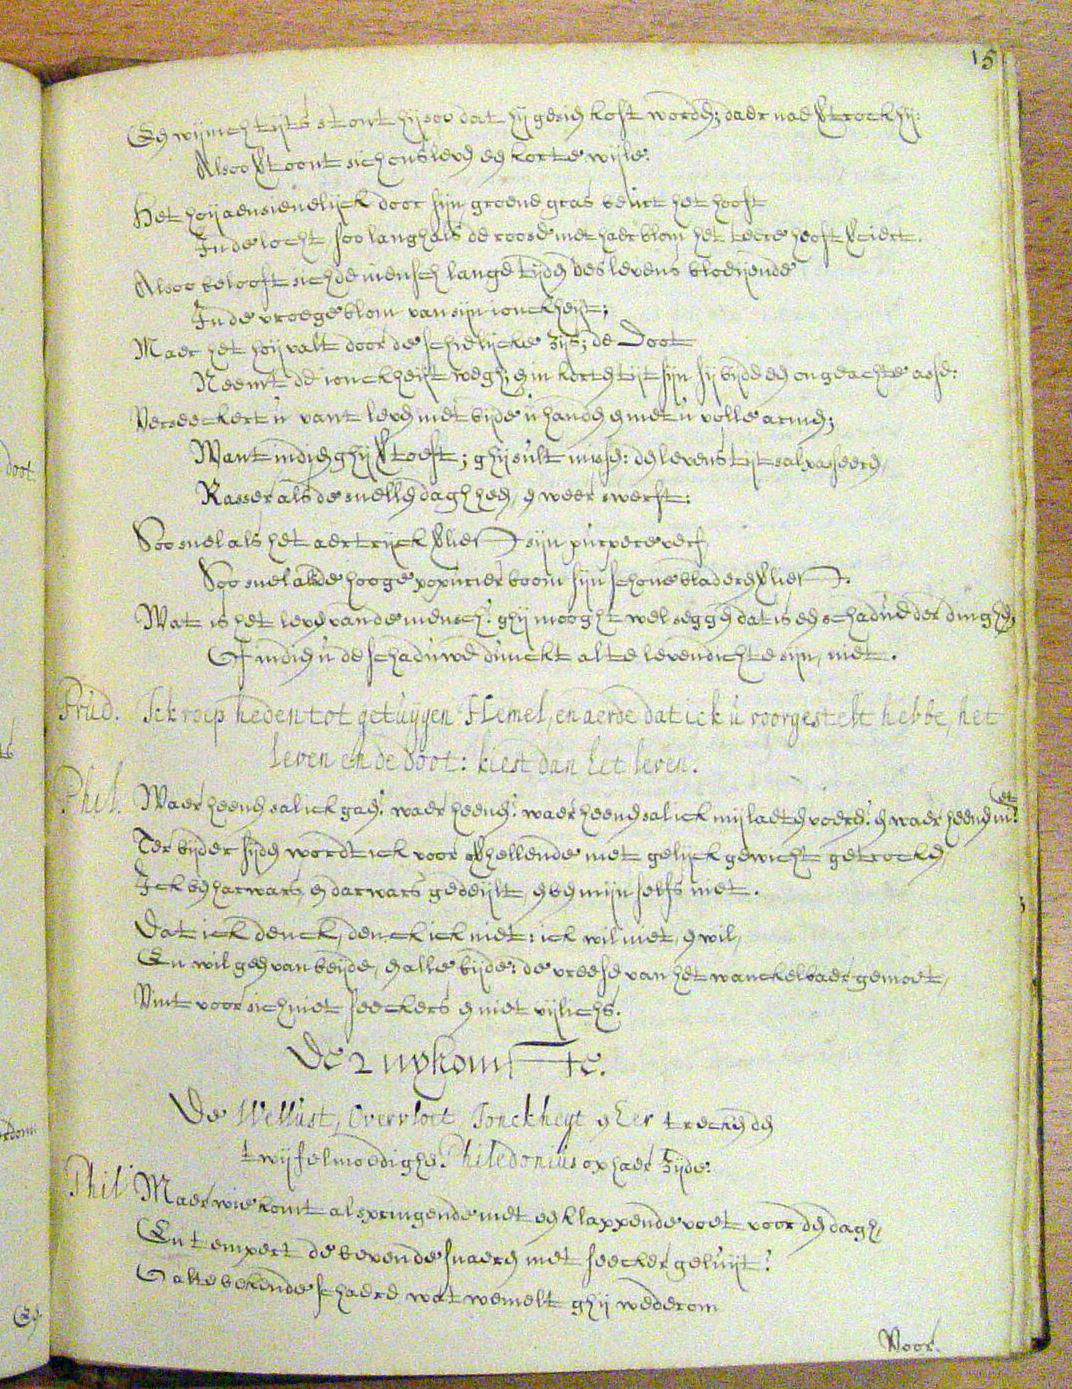 15
En wijnich tijts stont hij soo dat hij gesien kost worden; daer nae vertrock hij:
Alsoo vertoont sich ons leven een korte wijle.
Het hoij aensienelijck door sijn groene gras beurt het hooft
In de locht, soo langh als de roose met haer blom het teere hooft verciert.
Alsoo belooft sich de mensch lange tijden des levens bloeijende
In de vroege blom van sijn ionckheijt;
Maer het hoij valt door de schielijcke zijs; de Doot
Neemt de ionckheijt wegh; en in korten tijt sijn sij beijde een ongeachte asse:
Verseeckert u vant leven met beijde u handen en met u volle armen;
Want indien ghij vertoeft; ghij sult missen: den levens tijt sal passeren,
Rasser als de snellen dagh heen, en weer swerft:
Soo snel als het aertrijck verliest sijn purpere verf
Soo snel als de hooge popucier boom sijn schone bladeren verliest.
Wat is het leven van de mensch? ghij mooght wel seggen dat is een schaduwe der dinghen,
Of indien u de schaduwe dunckt al te levendich te sijn, niet.
Prud. Ick roep heden tot getuygen Hemel, en aerde dat ick u voorgestelt hebbe, het
leven en de doot: kiest dan het leven.
Phil. Waer heenen sal ick gaen? waer heenen? waer heenen sal ick mij laeten voeren? en waer heenen niet?
Ter beijder sijden wordt ick voor overhellende met gelijck gewicht getrocken
Ick ben harwars, en darwars gedeijlt, en ben mijn selfs niet.
Dat ick denck, denck ick niet: ick wil niet, en wil,
En wil geen van beijde, en alle beijde: de vreese van het wanckelbaer gemoet,
Vint voor sich niet seeckers en niet vijlichs.
De 2 upkomste.
De Wellust, Overvloet, Jonckheyt en Eer trecken den
twijfelmoedighen Philedonius op haer zijde.
Phil. Maer wie komt al springende met een klappende voet voor den dagh,
En tempert de bevende snaeren met seecker geluijt?
O al te bekende schaere wat wemelt ghij wederom
Voor.
doot.